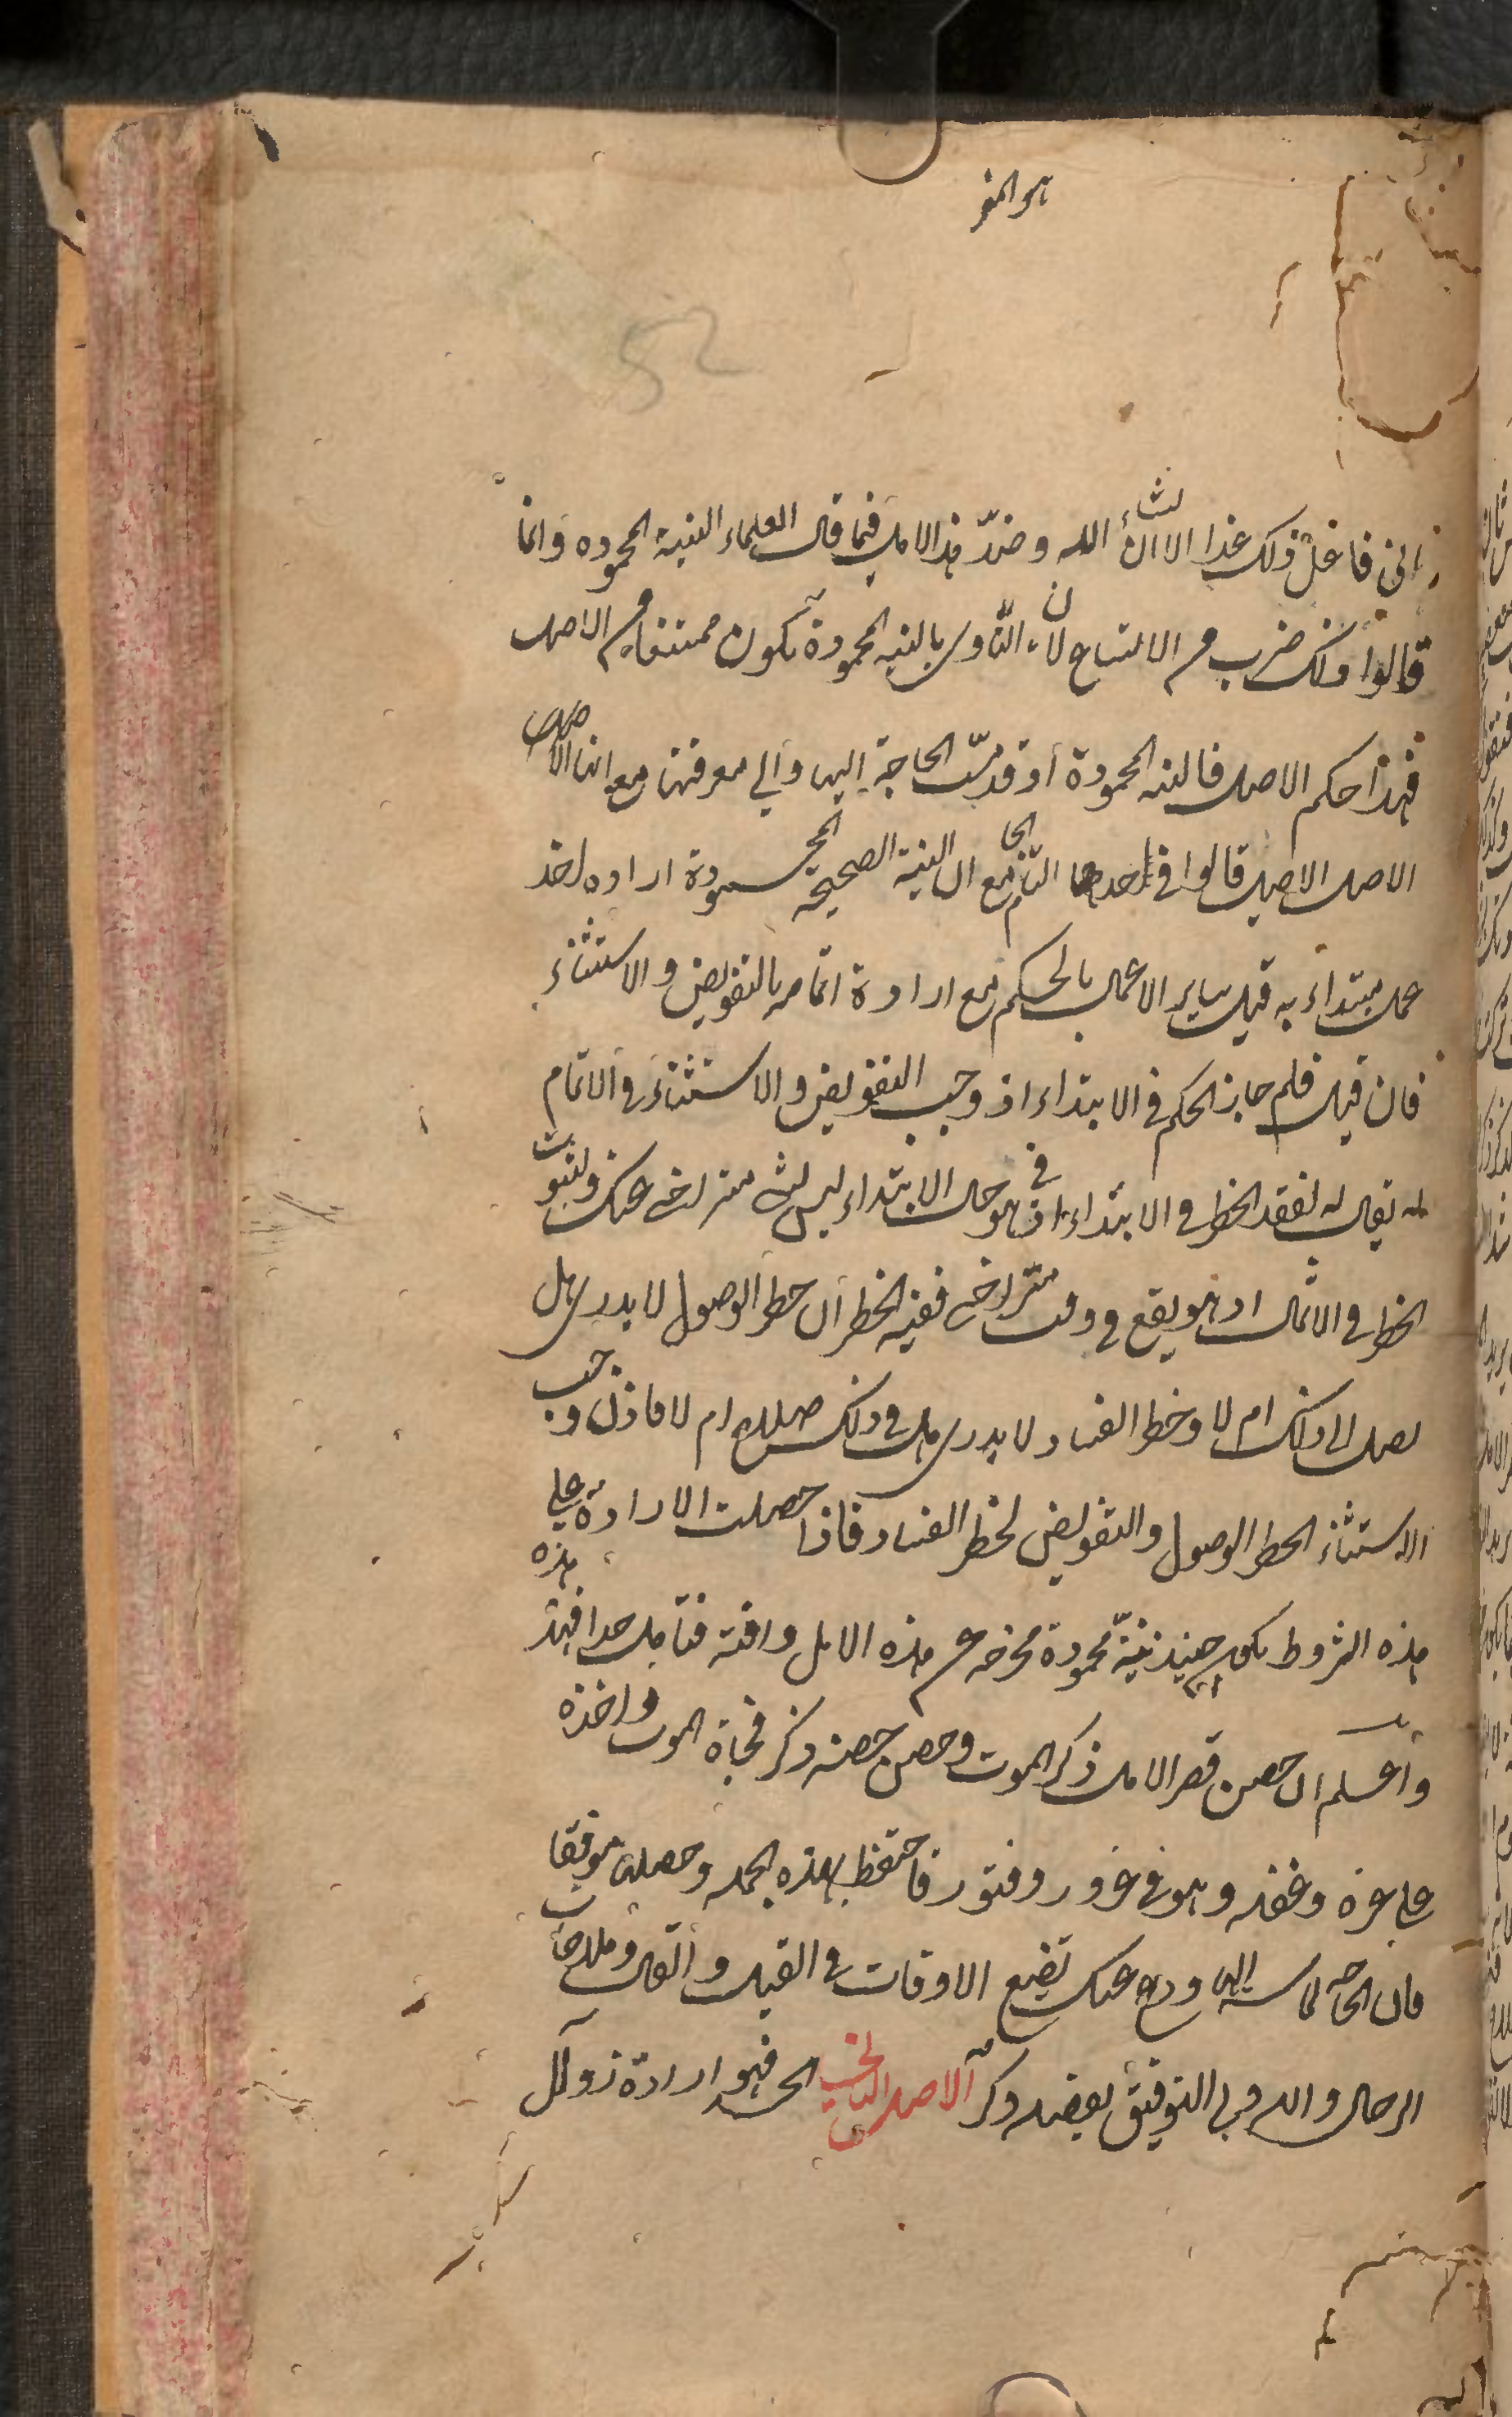 هو المغ
انى فاعل ذلك غدا الا ان يشاء الله و ضدّ هذا الامل فيما قال العلماء النية المحموده و انما
قالوا ذلك ضرب من الاتساع لان الناوى بالنيه المحمودة يكون ممتنعا من الاصل
فهذا حكم الاصل فالنيه المحمودة اذ قد مسّت الحاجة اليها و الى معرفتها مع انها الاصل
الاصل الاصيل قالوا فى احدها التام الجامع ان النية الصحيحه المحمودة اراده اخذ
عمل مبتداء به قبل ساير الاعمال بالحكم مع ارادة اتمامه بالتفويض و الاستثناء
فان قيل فلم جاز الحكم فى الابتداء اذ وجب التفويض و الاستثناء فى الاتمام
له يقال له لفقد الخطر فى الابتداء اذ هو فى حال الابتداء ليس بشى متراخى عنك و لثبوت
الخطر فى الاتمام اذ هو يقع فى وقت متراخى ففيه الخطران خطر الوصول لا يدرى هل
يصل الى ذلك ام لا و خطر الفساد لا يدرى هل فى ذلك صلاح ام لا فاذن وجب
الاستثناء لخطر الوصول و التفويض لخطر الفساد فاذا حصلت الارادة على
هذه
هذه الشروط يكون حينئذ نيّة محمودة مخرجه عن هذه الامل و افته فتامل جدا فهذه
و اعلم ان حصن قصر الامل ذكر الموت و حصن حصنه ذكر فجاة الموت و اخذه
على غره و غفله و هو فى غرور و فتور فاحتفظ بهذه الجمله و حصلها موفقا
فان الحاجه ماسه اليها و دع عنك تضيع الاوقات فى القيل و القال و ملاحات
الرجال و الله ولى التوفيق بفضله و كر الاصل الثانى الحسد فهو ارادة زوال